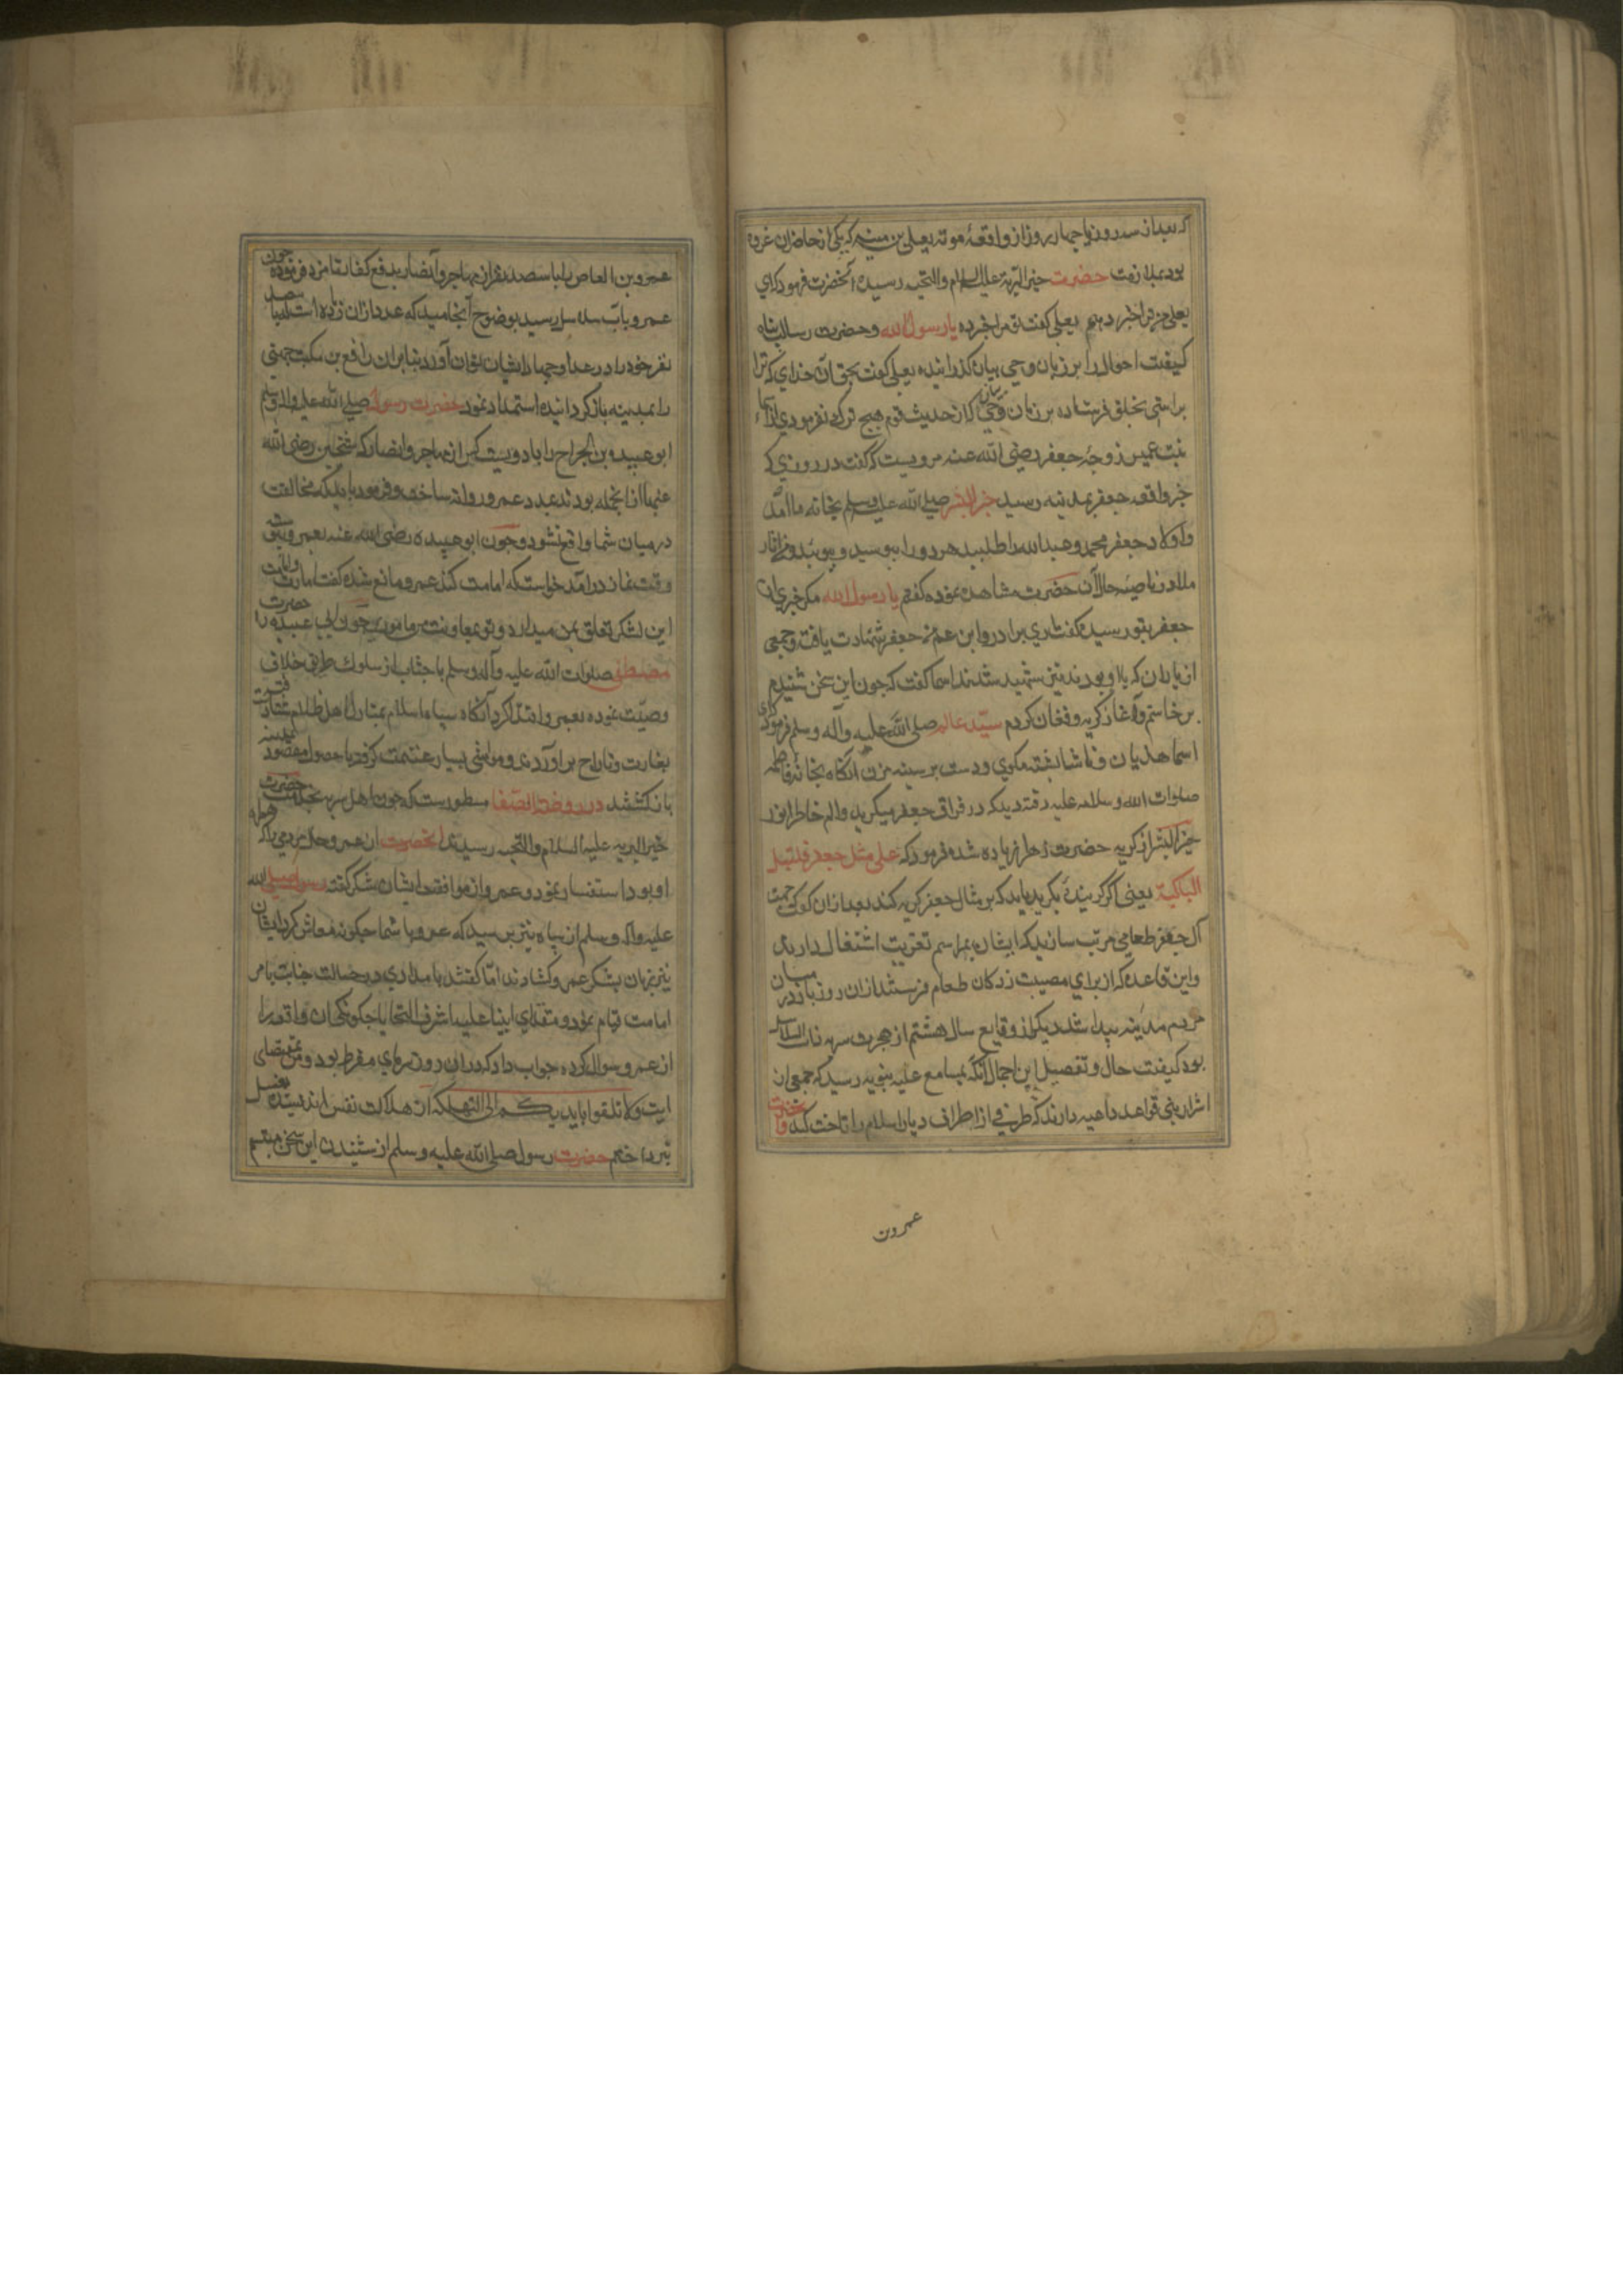 که بعد از سه روز یا چهار روز از واقعهٔ موته یعلی بن منیه که یکی از حاضران غزوه
بود بملازمت حضرت خیر البریه علیه السلام والتحیه رسیده آنحضرت فرمود که ای
یعلی خبر ترا خبر دهم یعلی کفت تو مرا خبر ده یا رسول الله وحضرت رسالت پناه
کیفیت احوال را بر زبان وحی بیان کذرانیده یعلی کفت بحق آن خدای که ترا
براستی بخلق فرستاده بر زبان وحی بیان که از حدیث قوم هیچ ترک نفرمودی از اسماء
بنت عمیس زوجهٔ جعفر رضی الله عنه مرویست که کفت در روزی که
خبر واقعه جعفر بمدینه رسید خیر البشر صلی الله علیه وسلم بخانه ما آمد
واولاد جعفر محمد وعبدالله را طلبید هر دو را ببوسید و ببویید ومن آثار
ملال در ناصیه حال آن حضرت مشاهده نموده کفتم یا رسول الله مکر خبری از
جعفر بتو رسیده کفت آری برادر وابن عم من جعفر شهادت یافت وجمعی
از یاران که با او بودند نیز شهید شدند اسما کفت که چون این سخن شنیدم
برخاستم وآغاز کریه وفغان کردم سید عالم صلی الله علیه وآله وسلم فرمود که ای
اسما هذیان و ناشایسته مکوی ودست بر سینه مزن آنکاه بخانه فاطمه
صلوات الله وسلامه علیه رفته دید که در فراق جعفر میکرید والم خاطر انور
خیر البشر از کریه حضرت زهرا زیاده شده فرمود که علی مثل جعفر فلتبک
الباکیة یعنی اکر کرینده بکرید باید که بر مثال جعفر کریه کند بعد از آن کفت جهت
آل جعفر طعامی مرتب سازید که ایشان بمراسم تعزیت اشتغال دارند
واین قاعده که از برای مصیبت زدکان طعام فرستند از آن روز باز در میان
مردم مدینه پیدا شد دیکر از وقایع سال هشتم از هجرت سریه ذات السلاسل
بود کیفیت حال وتفصیل این اجمال آنکه بمسامع علیه نبویه رسید که جمعی از
اشرار بنی قضاعه داعیه دارند که طرفی از اطراف دیار اسلام را تاخت کنند وآنحضرت
عمرو بن
عمرو بن العاص را با سیصد نفر از مهاجر وانصار بدفع کفار نامزد فرمود چون
عمرو بآب سلاسل رسید بوضوح انجامید که عدد دشمنان زیاده است که با سیصد
نفر خود را در عداد جهاد ایشان توان آورد بنابران رافع بن مکیث جهنی
را بمدینه باز کردانیده استمداد نمود حضرت رسول صلی الله علیه وآله وسلم
ابو عبیده بن الجراح را با دویست کس از مهاجر وانصار که شیخین رضی الله
عنهما از آنجمله بودند بمدد عمرو روانه ساخت وفرمود باید که مخالفت
در میان شما واقع نشود و چون ابو عبیده رضی الله عنه بعمرو پیوست
وقت نماز درآمد خواست که امامت کند عمرو مانع شده کفت امارت وامامت
این لشکر تعلق بمن میدارد و تو بمعاونت من مامور چون ابی عبیده را حضرت
مصطفی صلوات الله علیه وآله وسلم باجتناب از سلوک طریق خلاف
وصیت نموده بعمرو اقتدا کرد آنکاه سپاه اسلام بمنازل اهل ظلام شتافته
بغارت وتاراج برآوردند ومواشی بسیار غنیمت کرفته با حصول مقصود بمدینه
باز کشتند در روضة الصفا مسطورست که چون اهل سریه بخدمت حضرت
خیر البریه علیه السلام والتحیه رسیدند آنحضرت از عمرو حال مردمی را که همراه
او بود استفسار نمود و عمرو از موافقت ایشان شکر کفته رسول صلی الله
علیه وآله وسلم از سپاه نیز پرسید که عمرو با شما چکونه معاش کرد ایشان
نیز زبان بشکر عمرو کشادند اما کفتند با ما نماز در حالت جنابت بامر
امامت قیام نمود و مقتدای انبیا علیه اشرف التحایا چکونکی آن واقعه را
از عمرو سوال کرده جواب داد که در آن روز سرمای مفرط بود ومن بمقتضای
آیت ولا تلقوا بایدیکم الی التهلکه از هلاکت نفس اندیشیده بغسل
نپرداختم حضرت رسول صلی الله علیه وسلم از شنیدن این سخن متبسم